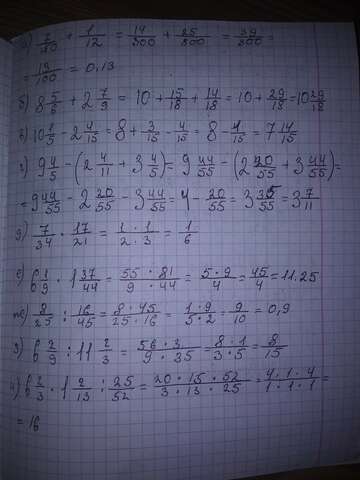 а) 7/150 + 1/12 = 14/300 + 25/300 = 39/300 =
= 13/100 = 0,13
б) 8 5/6 + 2 7/9 = 10 + 15/18 + 14/18 = 10 + 29/18 = 10 29/18
в) 10 1/5 - 2 4/15 = 8 + 3/15 - 4/15 = 8 - 1/15 = 7 14/15
г) 9 4/5 - (2 4/11 + 3 4/5) = 9 44/55 - (2 20/55 + 3 44/55) =
= 9 44/55 - 2 20/55 - 3 44/55 = 4 - 20/55 = 3 35/55 = 3 7/11
д) 7/34 · 17/21 = 1 · 1/2 · 3 = 1/6
е) 6 1/9 · 1 37/44 = 55 · 81/9 · 44 = 5 · 9/4 = 45/4 = 11.25
ж) 8/25 : 16/45 = 8 · 45/25 · 16 = 1 · 9/5 · 2 = 9/10 = 0,9
з) 6 2/9 : 11 2/3 = 56 · 3/9 · 35 = 8 · 1/3 · 5 = 8/15
и) 6 2/3 · 1 2/13 : 25/52 = 20 · 15 · 52/3 · 13 · 25 = 4 · 1 · 4/1 · 1 · 1 =
= 16